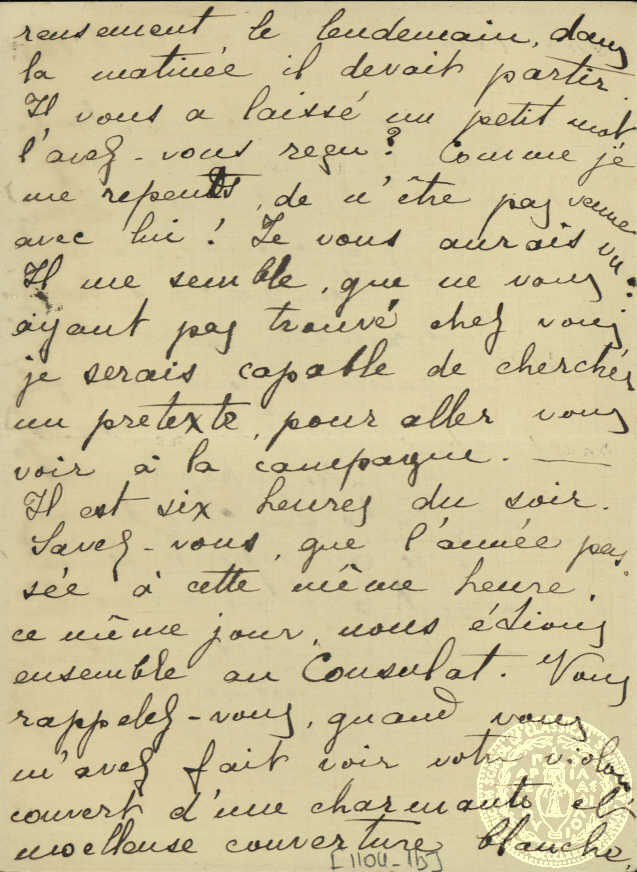 reusement le lendemain, dans
la matinée il devait partir.
Il vous a laissé un petit mot
l'avez-vous reçu? Comme je
me repents, de n'être pas venue
avec lui! Je vous aurais vu.
Il me semble, que ne vous
ayant pas trouvé chez vous
je serais capable de cherchér
un pretexte, pour aller vous
voir à la campagne. —
Il est six heures du soir.
Savez-vous, que l'année pas
sée à cette même heure,
ce même jour, nous étions
ensemble au Consulat. Vous
rappelez-vous, quand vous
m'avez fait voir votre violon
couvert d'une charmante et
moelleuse couverture blanche,
[1104-15]